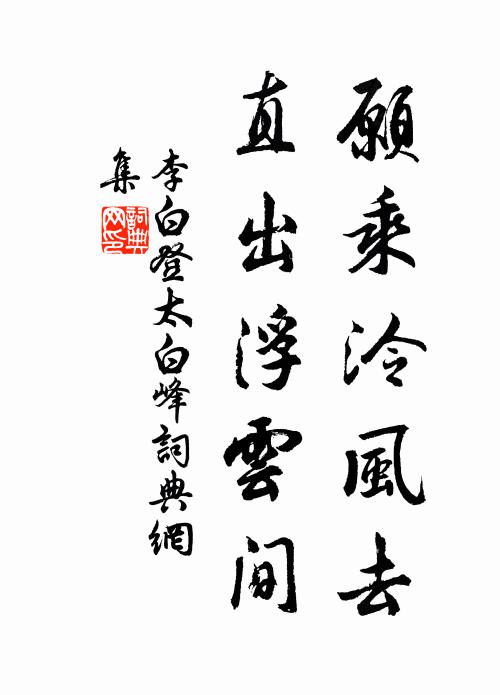 願乘泠風去
直出浮雲間
李白登太白峰詞典網
集
詞典
网印